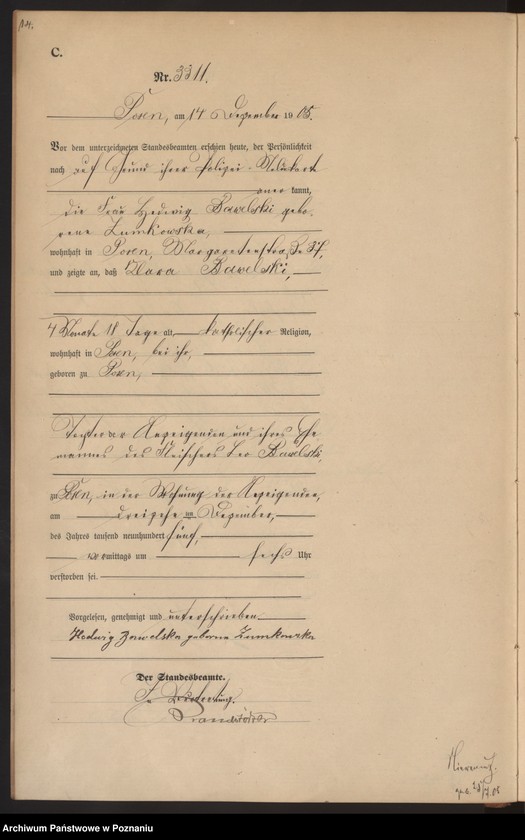 C.
Nr. 3311.
Posen, am 14 Dezember 1905.
Vor dem unterzeichneten Standesbeamten erschien heute, der Persönlichkeit
nach auf Grund ihrer Polizei-Meldekarte
aner kannt,
die Frau Hedwig Bawelski gebo,
rene Zumkowska,
wohnhaft in Posen, Margaretenstraße 37,
und zeigte an, daß Klara Bawelski,
4 Monate 18 Tage alt, katholischer Religion,
wohnhaft in Posen, bei ihr,
geboren zu Posen,
Tochter der Anzeigenden und ihres Ehe
mannes des Fleischers Leo Bawelski,
zu Posen, in der Wohnung der Anzeigenden,
am dreizehnten Dezember,
des Jahres tausend neunhundert fünf,
mittags um sechs Uhr
verstorben sei.
Vorgelesen, genehmigt und unterschrieben
Hedwig Bawelska geborene Zumkowska
Der Standesbeamte.
Archiwum Państwowe w Poznaniu